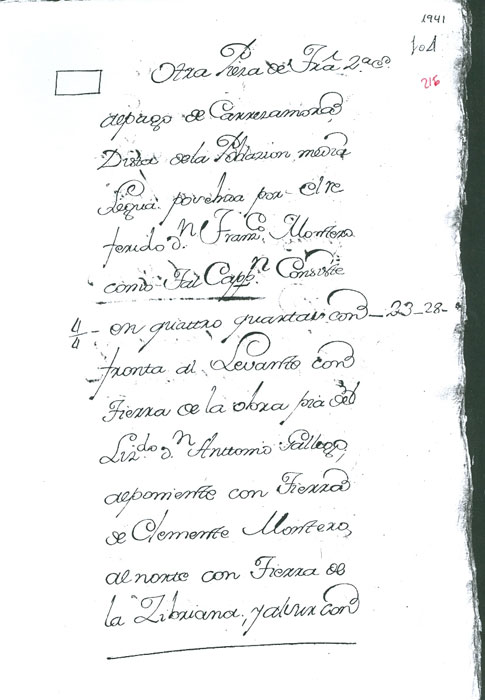 1941
104
216
Otra Pieza de Tra. 2ª cd.
al pago de Carreramora
Dista de la Poblazion media
Legua posehida por el re
ferido Dn Franco. Montero
como tal Cappn. Consiste
4/4 - en quattro quartas con - 23-28-
fronta al Levante con
Tierra de la obra pia del
Lizdo. Dn Anttonio Gallego,
al poniente con Tierra
de Clemente Montero,
al norte con Tierra de
la Zibriana, y al sur con